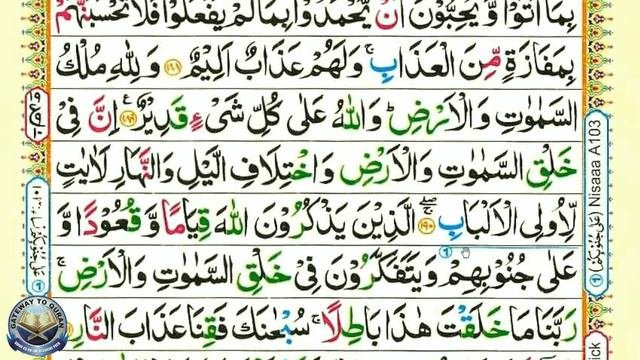 بِمَاۤ اَتَوْا وَّ يُحِبُّوْنَ اَنْ يُّحْمَدُوْا بِمَا لَمْ يَفْعَلُوْا فَلَا تَحْسَبَنَّهُمْ
بِمَفَازَةٍ مِّنَ الْعَذَابِ ۚ وَ لَهُمْ عَذَابٌ اَلِيْمٌ ۝۱۸۸ وَ لِلّٰهِ مُلْكُ
السَّمٰوٰتِ وَ الْاَرْضِ ؕ وَ اللّٰهُ عَلٰى كُلِّ شَىْءٍ قَدِيْرٌ ۝۱۸۹ اِنَّ فِىْ
خَلْقِ السَّمٰوٰتِ وَ الْاَرْضِ وَ اخْتِلَافِ الَّيْلِ وَ النَّهَارِ لَاٰيٰتٍ
لِّاُولِى الْاَلْبَابِ ۝۱۹۰ الَّذِيْنَ يَذْكُرُوْنَ اللّٰهَ قِيَامًا وَّ قُعُوْدًا وَّ
عَلٰى جُنُوْبِهِمْ وَ يَتَفَكَّرُوْنَ فِىْ خَلْقِ السَّمٰوٰتِ وَ الْاَرْضِ ۚ
رَبَّنَا مَا خَلَقْتَ هٰذَا بَاطِلًا ۚ سُبْحٰنَكَ فَقِنَا عَذَابَ النَّارِ
Nisaaa A103
GATEWAY TO QURAN